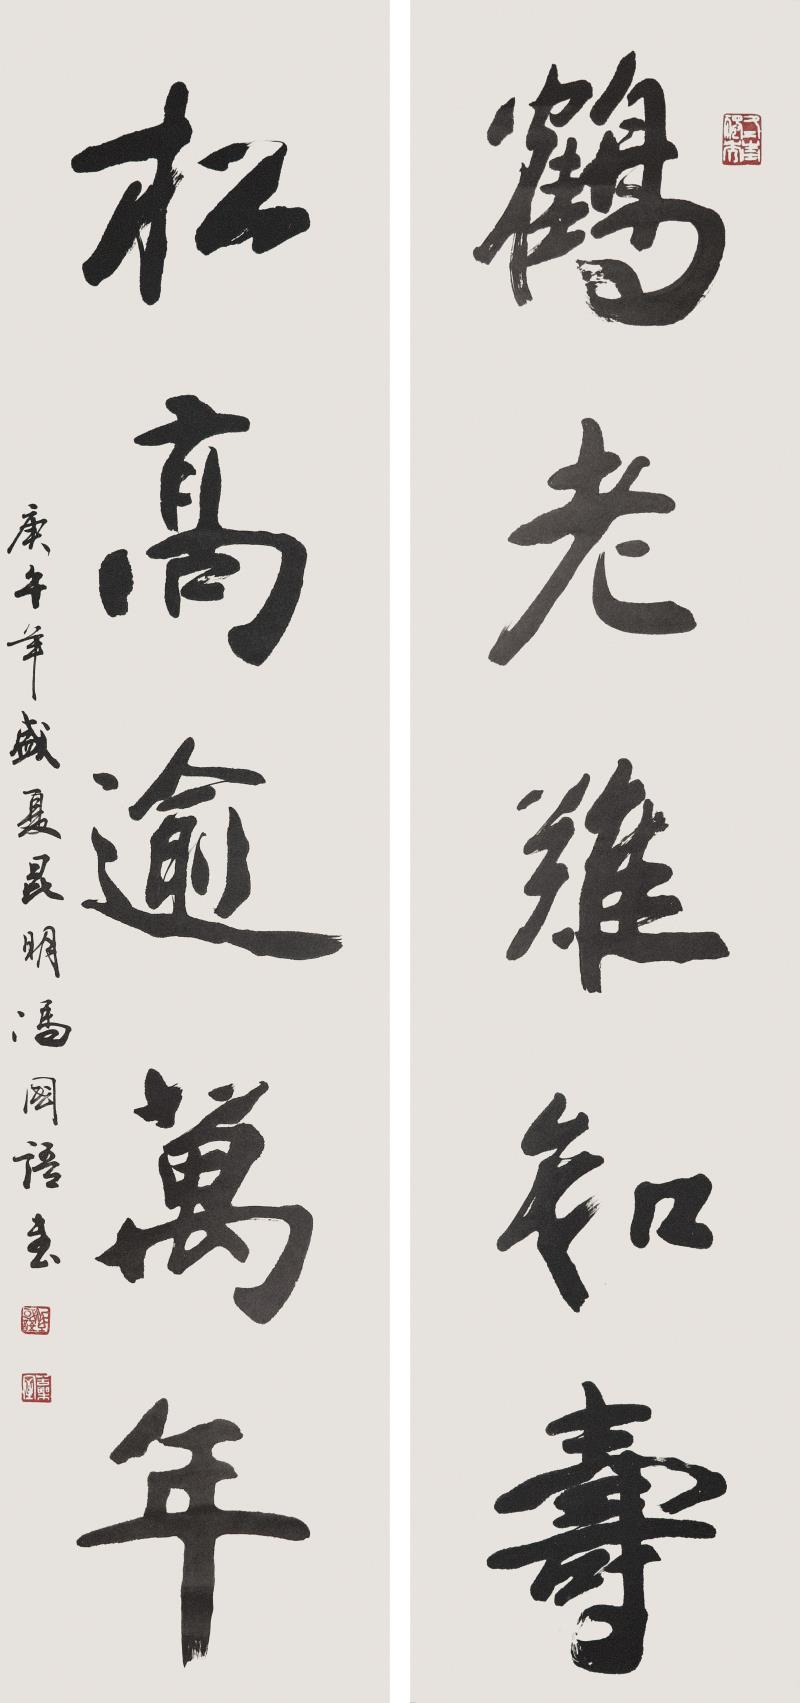 鶴老難知壽
松高逾萬年
庚午年盛夏昆明馮国語書